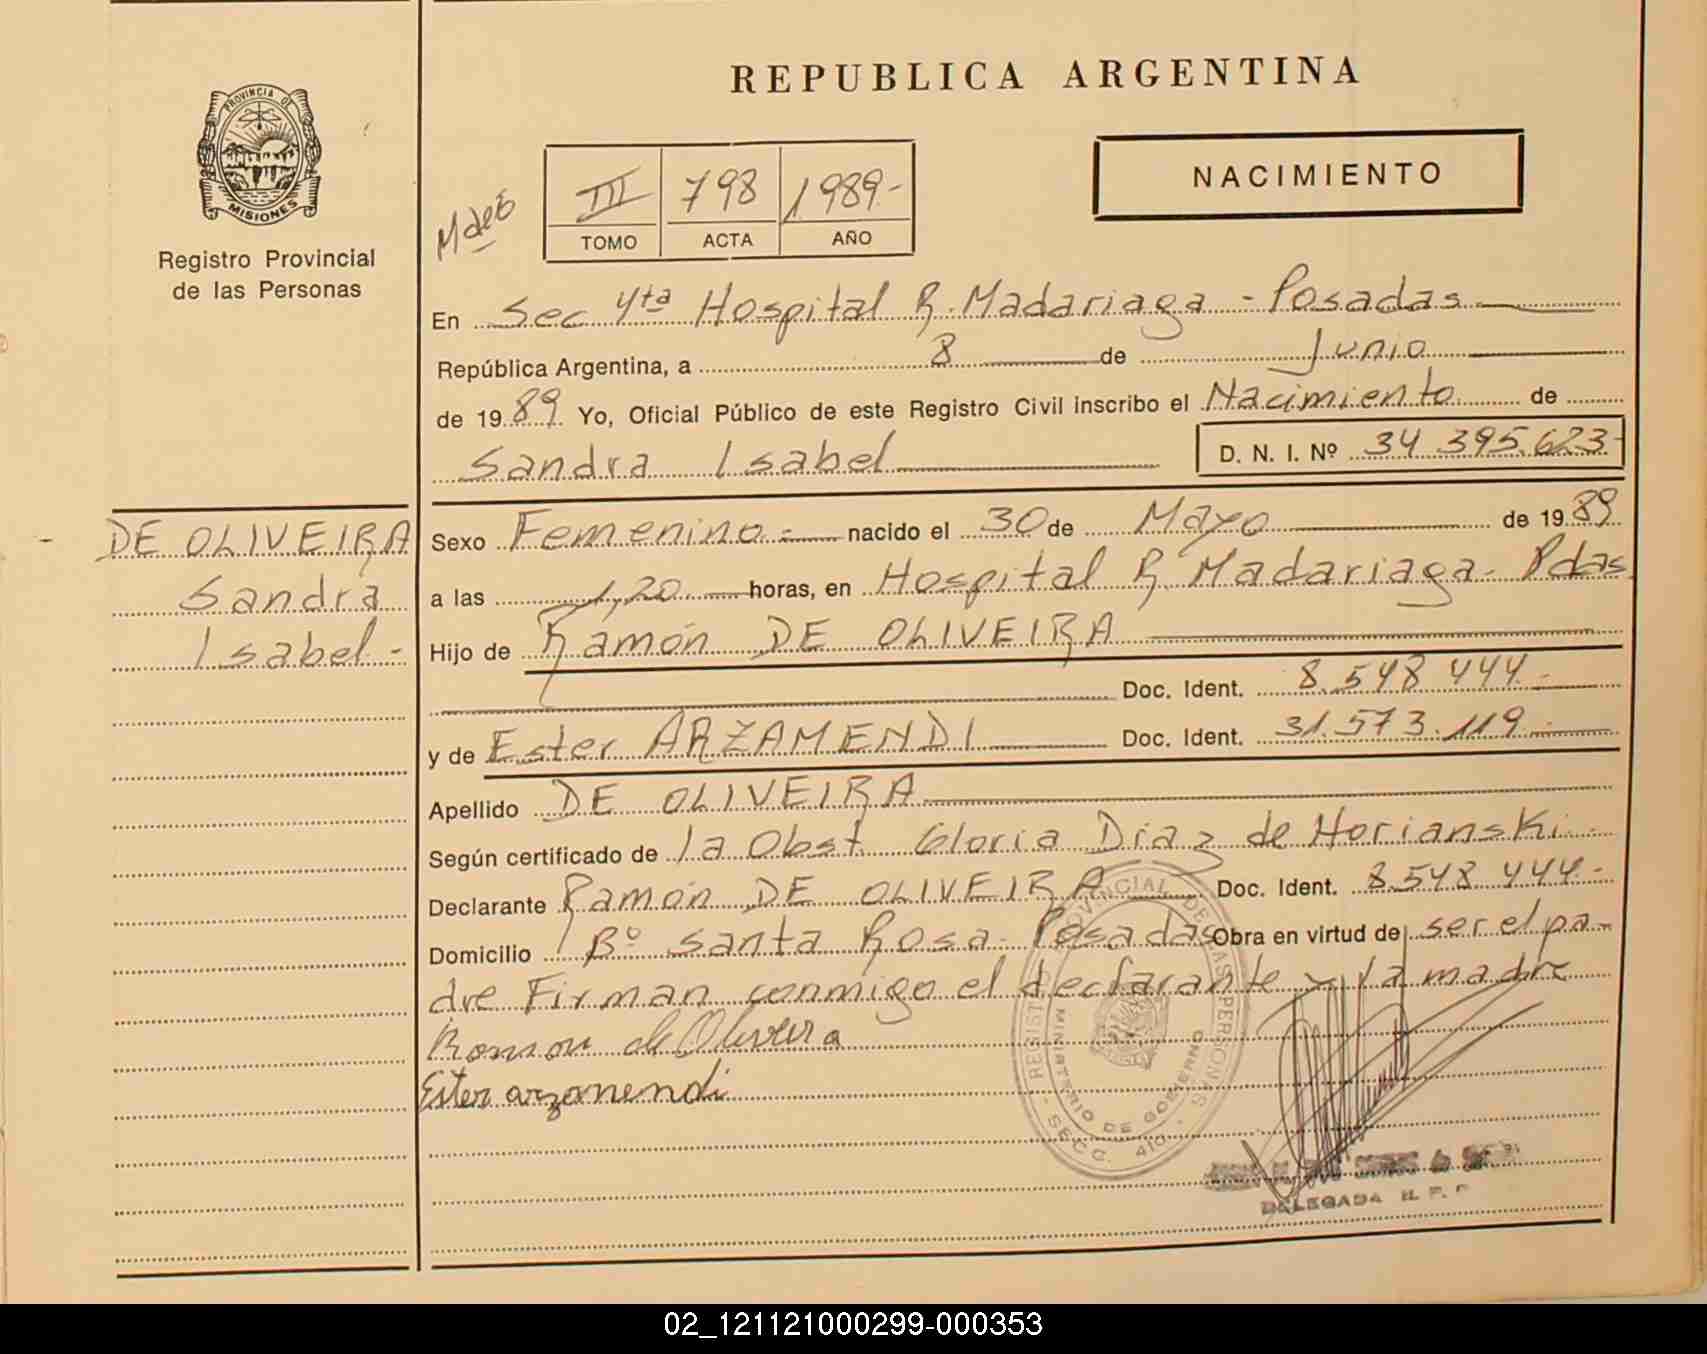 REPUBLICA ARGENTINA
PROVINCIA DE
MISIONES
Registro Provincial
de las Personas
III 798 1989.-
TOMO ACTA AÑO
NACIMIENTO
En Sec 4ta Hospital R. Madariaga - Posadas
República Argentina, a 8 de Junio
de 1989 Yo, Oficial Público de este Registro Civil inscribo el Nacimiento de
Sandra Isabel D. N. I. Nº 34 395.623-
DE OLIVEIRA
Sandra
Isabel -
Sexo Femenino.- nacido el 30 de Mayo de 1989
a las 1,20 horas, en Hospital R. Madariaga- Pdas.
Hijo de Ramón DE OLIVEIRA
Doc. Ident. 8.548 444.-
y de Ester ARZAMENDI Doc. Ident. 31.573.119.-
Apellido DE OLIVEIRA
Según certificado de la Obst Gloria Diaz de Horianski.-
Declarante Ramón DE OLIVEIRA Doc. Ident. 8.548 444.-
Domicilio Bº Santa Rosa- Posadas Obra en virtud de ser el pa-
dre Firman conmigo el declarante y la madre
Ramon de Oliveira
Ester arzamendi
REGISTRO PROVINCIAL DE LAS PERSONAS
MINISTERIO DE GOBIERNO
- SECC. 4TO -
DELEGADA
02_121121000299-000353